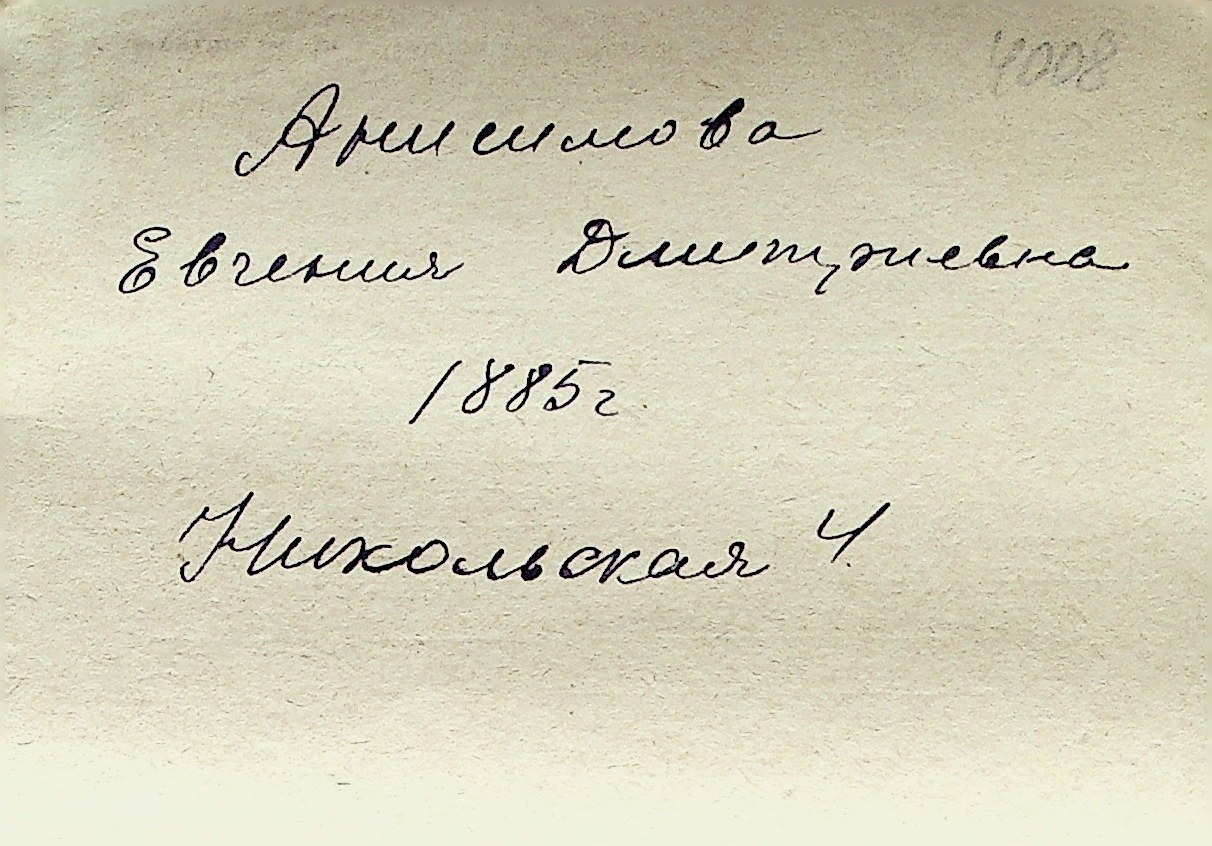 4008
Анисимова
Евгения Дмитриевна
1885г.
Никольская 4.